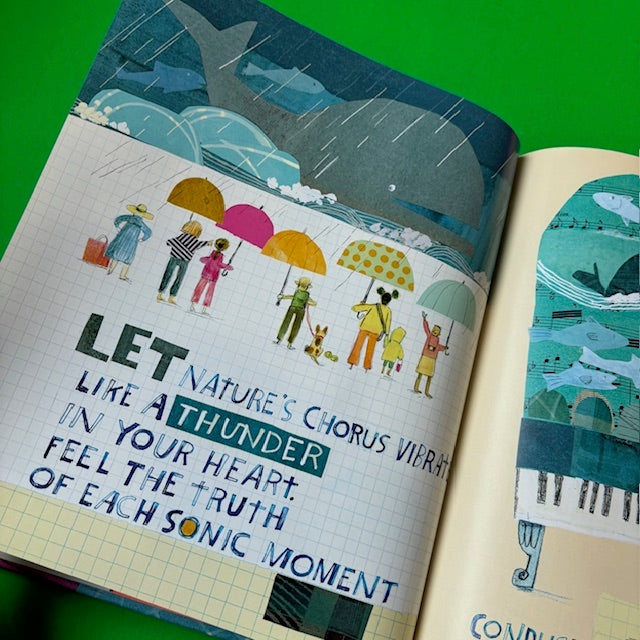 LET NATURE'S CHORUS VIBRAT
LIKE A THUNDER
IN YOUR HEART.
FEEL THE TRUTH
OF EACH SONIC MOMENT